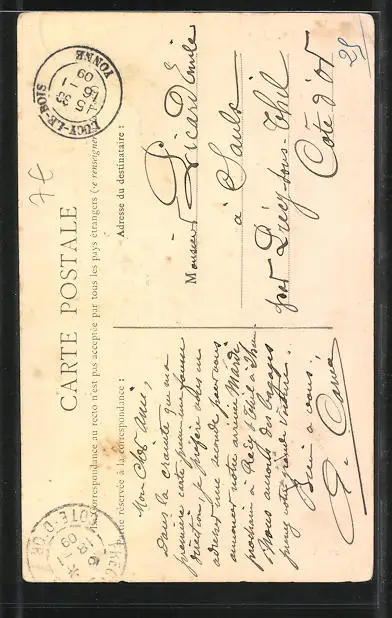 CARTE POSTALE
La Correspondance au recto n'est pas acceptée par tous les pays étrangers (se renseigner
Partie réservée à la correspondance :
Adresse du destinataire :
Mon cher ami,
Dans la crainte que ma
première carte prenne une fausse
direction, je préfère vous en
adresser une seconde pour vous
annoncer notre arrivée Mardi
prochain à Précy s/ Thil à
Nous aurons des bagages
prenez votre grande voiture.
Bien à vous.
Monsieur Picard Emile
à Saulx
par Précy-sous-Thil
Côte d'Or
25
7E
LUCY-LE-BOIS
15 35
16 - 1
09
YONNE
COTE-D'OR